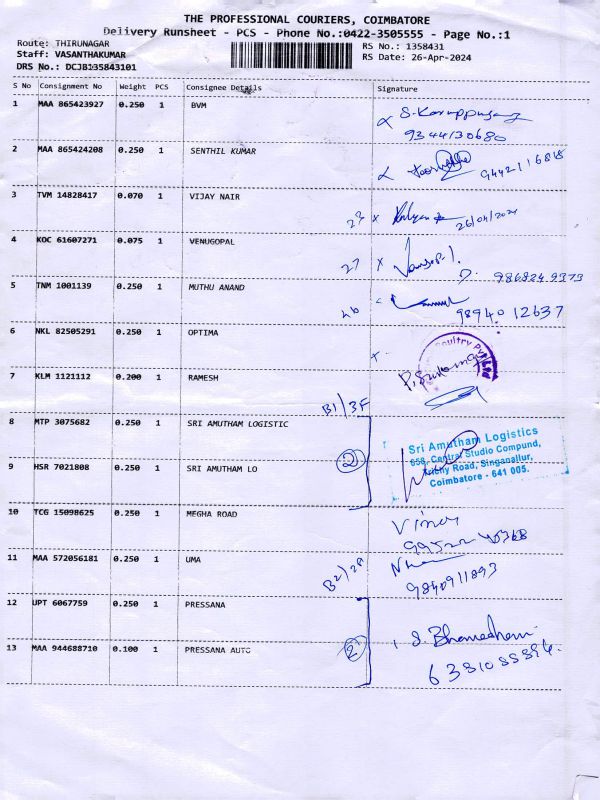 THE PROFESSIONAL COURIERS, COIMBATORE
Delivery Runsheet - PCS - Phone No.:0422-3505555 - Page No.:1
Route: THIRUNAGAR
Staff: VASANTHAKUMAR
DRS No.: DCJB135843101
RS No.: 1358431
RS Date: 26-Apr-2024
S No Consignment No Weight PCS Consignee Details Signature
1 MAA 865423927 0.250 1 BVM
9344130680
2 MAA 865424208 0.250 1 SENTHIL KUMAR
3 TVM 14828417 0.070 1 VIJAY NAIR
26/04/2024
4 KOC 61607271 0.075 1 VENUGOPAL
27
5 TNM 1001139 0.250 1 MUTHU ANAND
98940 12637
6 NKL 82505291 0.250 1 OPTIMA
Poultry Pvt Ltd
7 KLM 1121112 0.200 1 RAMESH
B1/3F
8 MTP 3075682 0.250 1 SRI AMUTHAM LOGISTIC
2
Sri Amutham Logistics
658, Central Studio Compund,
Trichy Road, Singanallur,
Coimbatore - 641 005.
9 HSR 7021808 0.250 1 SRI AMUTHAM LO
10 TCG 15098625 0.250 1 MEGHA ROAD
11 MAA 572056181 0.250 1 UMA
9840911893
12 UPT 6067759 0.250 1 PRESSANA
2
13 MAA 944688710 0.100 1 PRESSANA AUTO